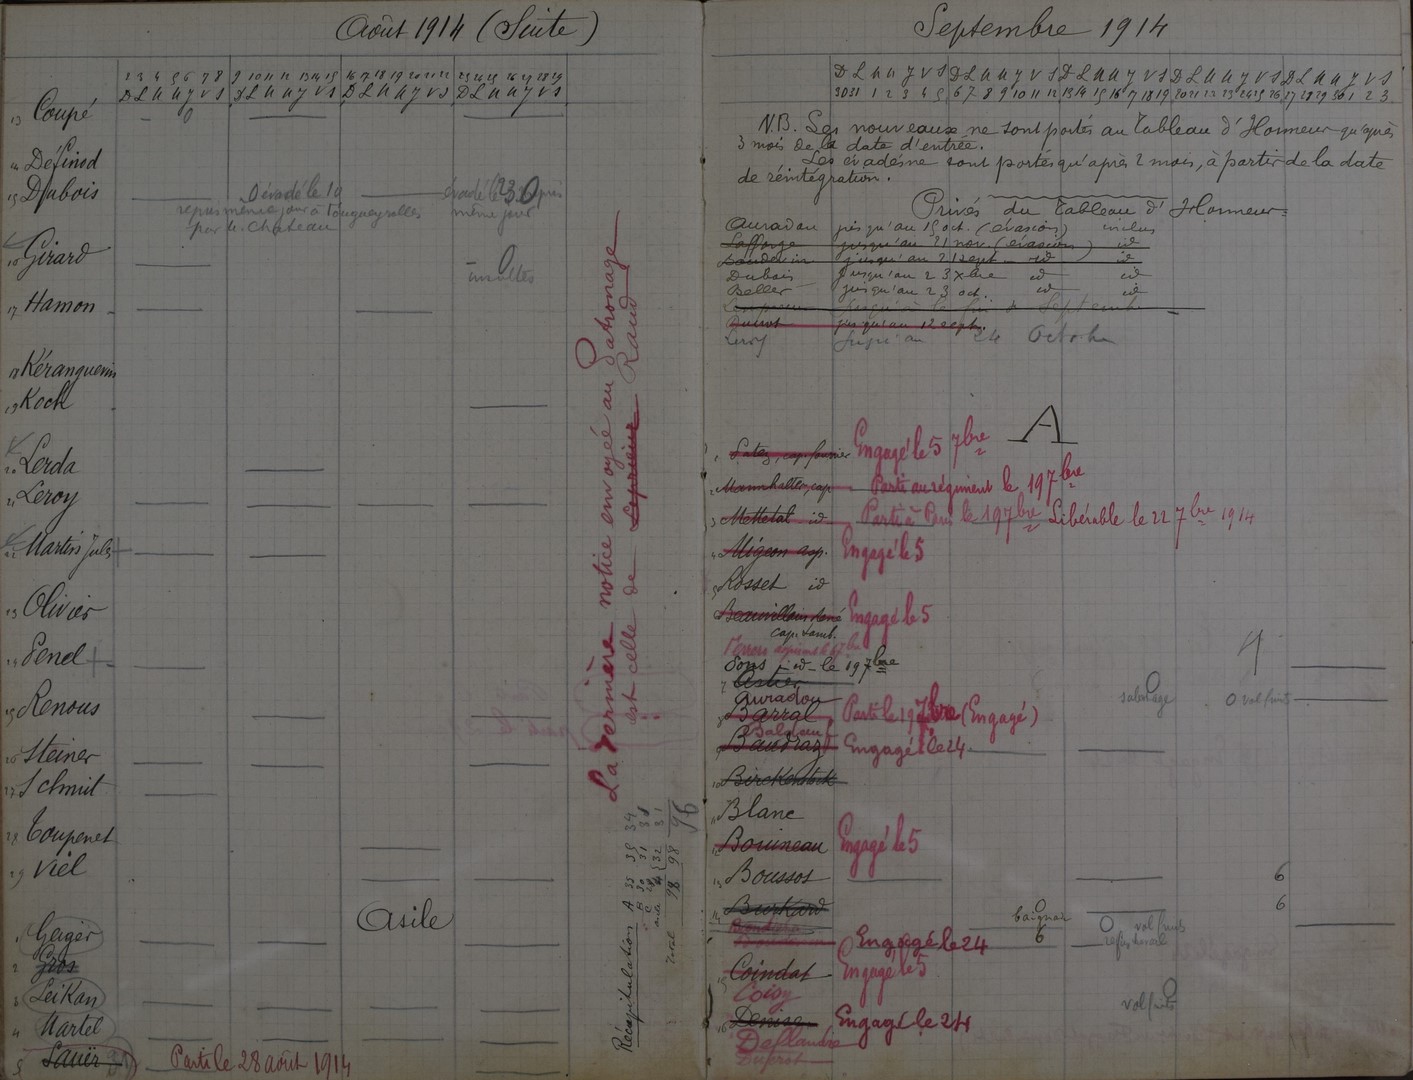 Août 1914 (Suite)
2 3 4 5 6 7 8 9 10 11 12 13 14 15 16 17 18 19 20 21 22 23 24 25 26 27 28 29
D L M M J V S D L M M J V S D L M M J V S D L M M J V S
13 Coupé
14 Définod
15 Dubois Evadé le 19 évadé le 23 repris
repris même jour à Fougueyrolles même jour
par M. Chateau
16 Girard
insultes
17 Hamon
18 Kéranguenis
19 Koch
20 Lerda
21 Leroy
22 Martin Jules
23 Olivier
24 Penel
25 Renous
26 Steiner
27 Schmit
28 Toupenet
29 Viel
Asile
1 Geiger
2 Gros
3 Leikan
4 Martel
5 Lauër Parti le 28 août 1914
La dernière notice envoyée au Patronage
est celle de Raud
Récapitulation
A 35 35 34
B 30 31 31
98 98 96
Septembre 1914
D L M M J V S D L M M J V S D L M M J V S D L M M J V S D L M M J V S
30 31 1 2 3 4 5 6 7 8 9 10 11 12 13 14 15 16 17 18 19 20 21 22 23 24 25 26 27 28 29 30 1 2 3
N.B. Les nouveaux ne sont portés au Tableau d'Honneur qu'après
3 mois de la date d'entrée.
Les évadés ne sont portés qu'après 2 mois, à partir de la date
de réintégration.
Privés du Tableau d'Honneur
Auradou jusqu'au 15 oct. (évasion) inclus
Lafforge jusqu'au 21 nov. (évasion) id
jusqu'au 21 sept id id
Dubois jusqu'au 23 Xbre id id
Beller jusqu'au 23 oct. id id
Septembre
jusqu'au 12 sept.
Leroy jusqu'au 24 Octobre
A
1 cap. fourrier Engagé le 5 7bre
2 Mannhalter, cap Parti au régiment le 19 7bre
3 Mettetal id Parti à Paris le 19 7bre Libérable le 22 7bre 1914
4 Migeon cap. Engagé le 5
5 Rosset id
Beauvillain René Engagé le 5
cap. tamb.
Pons id le 19 7bre
7 Astier
Auradou sabotage 0 vol fruits
8 Barral Parti le 19 7bre (Engagé)
Balaguer
9 Baudraz Engagé le 24
10 Birckenstock
11 Blanc
12 Bouineau Engagé le 5
13 Boussos 6
14 Burkard 6
baignait 0 vol fruits
6 refus travail
Engagé le 24
15 Coindat Engagé le 5
Coisy vol fruits
16 Denise Engagé le 24
Deflandre
Duprat